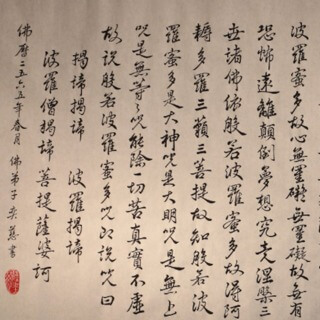 波羅蜜多故心無罣礙無罣礙故無有
恐怖遠離顛倒夢想究竟涅槃三
世諸佛依般若波羅蜜多故得阿
耨多羅三藐三菩提故知般若波
羅蜜多是大神咒是大明咒是無上
咒是無等等咒能除一切苦真實不虛
故說般若波羅蜜多咒即說咒曰
揭諦揭諦 波羅揭諦
波羅僧揭諦 菩提薩婆訶
佛曆二五六五年春月 佛弟子 慧書